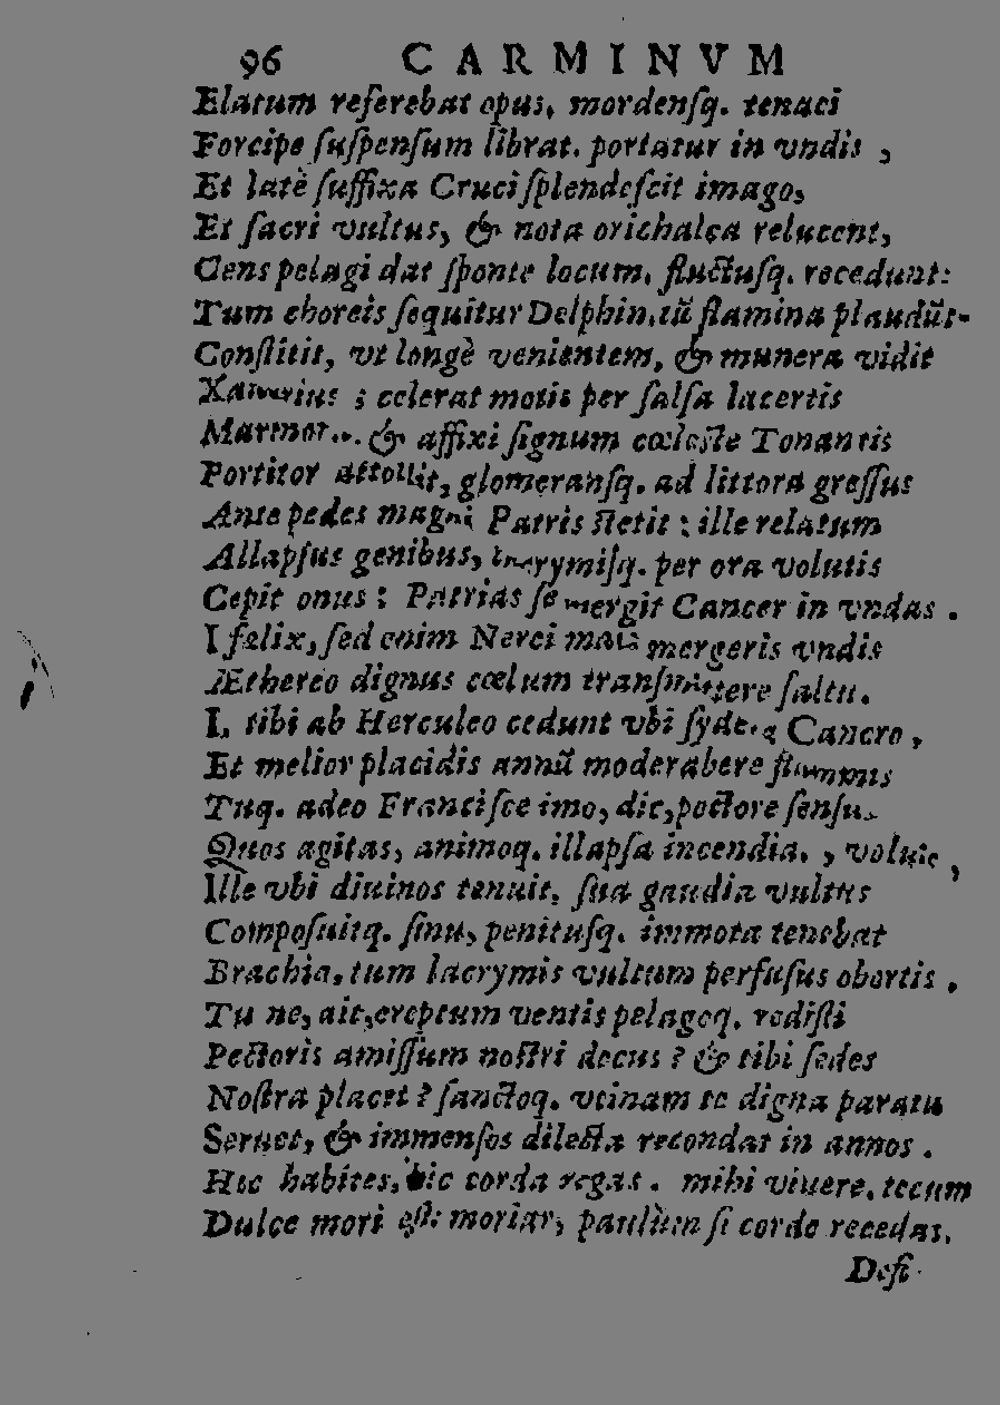 96 CARMINVM
Elatum referebat opus, mordensq. tenaci
Forcipe suspensum librat. portatur in vndis ,
Et latè suffixa Cruci splendescit imago,
Et sacri vultus, & nota orichalca relucent,
Gens pelagi dat sponte locum, fluctusq. recedunt:
Tum choreis sequitur Delphin, tũ flamina plaudũt.
Constitit, vt longè venientem, & munera vidit
Xauerius ; celerat motis per salsa lacertis
& affixi signum cœleste Tonantis
Portitor attollit, glomeransq. ad littora gressus
Ante pedes magni Patris stetit : ille relatum
Allapsus genibus, lacrymisq. per ora volutis
Cepit onus : Patrias se mergit Cancer in vndas .
I felix, sed enim Nerei mergeris vndis
Æthereo dignus cœlum transmittere saltu.
I, tibi ab Herculeo cedunt vbi sydera Cancro,
Et melior placidis annũ moderabere flammis
Tuq. adeo Francisce imo, dic, pectore sensus
Quos agitas, animoq. illapsa incendia, , voluis,
Ille vbi diuinos tenuit, sua gaudia vultus
Composuitq. sinu, penitusq. immota tenebat
Brachia, tum lacrymis vultum perfusus obortis .
Tu ne, ait, ereptum ventis pelagoq. redisti
Pectoris amissum nostri decus ? & tibi sedes
Nostra placet ? sanctoq. vtinam te digna paratu
Seruet, & immensos dilecta recondat in annos .
Hic habites, hic corda regas . mihi viuere, tecum
Dulce mori est: moriar, paulùm si corde recedas.
Desi-